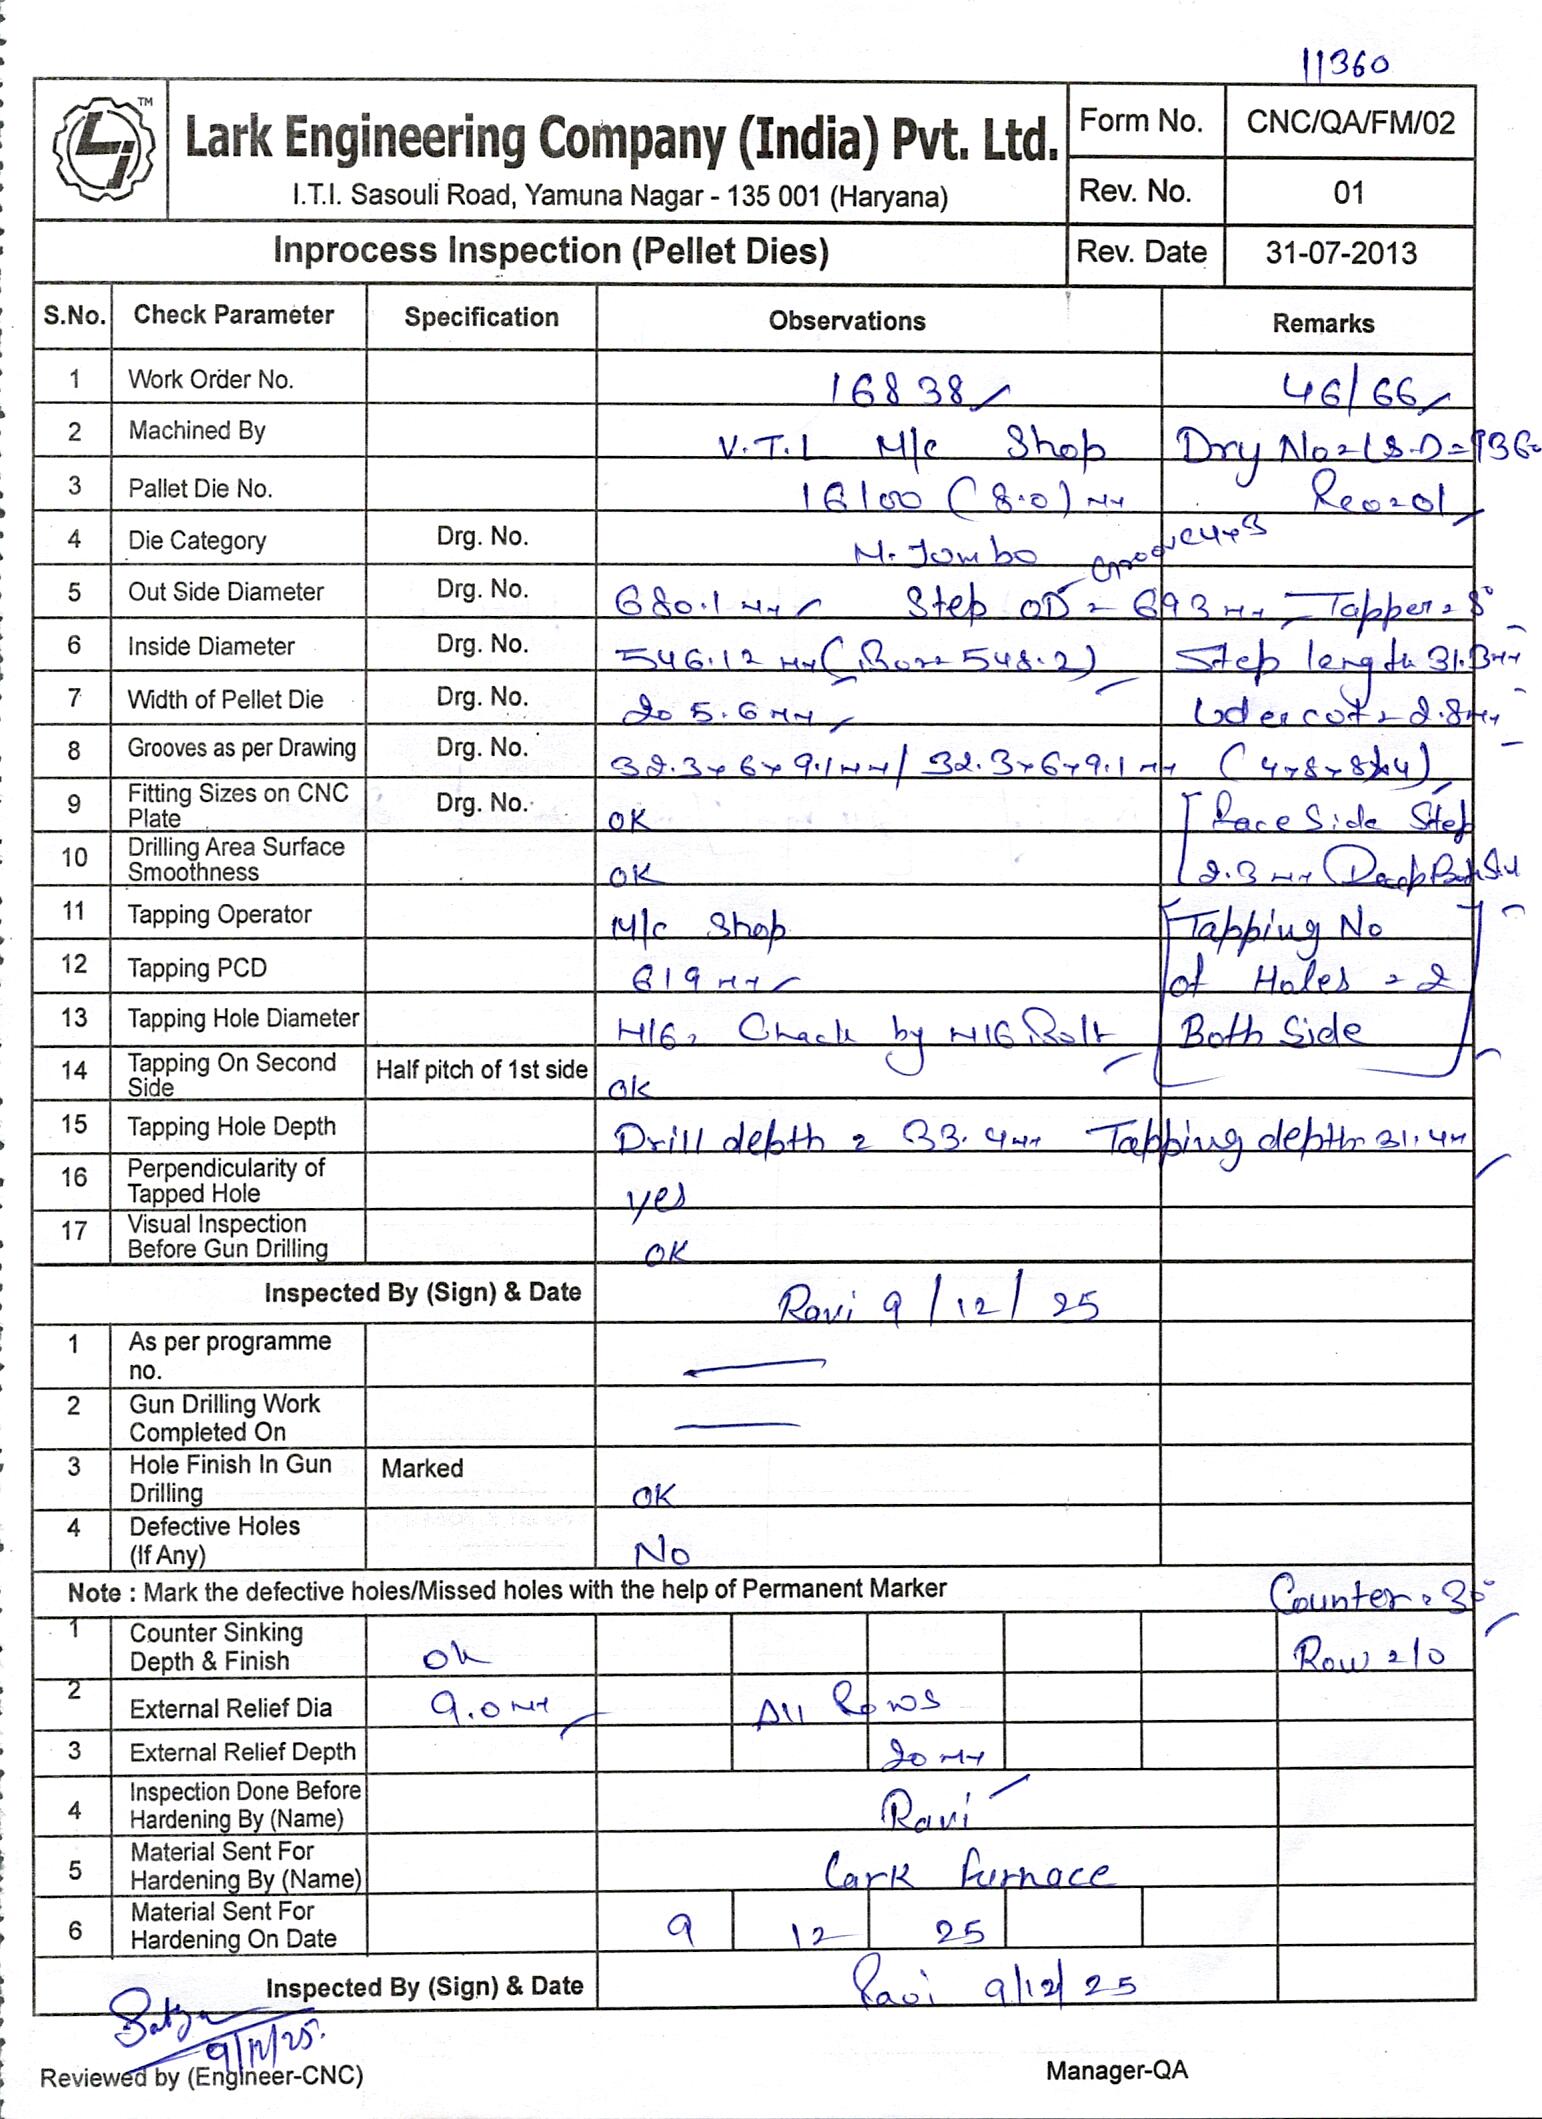 11360
TM
Lark Engineering Company (India) Pvt. Ltd.
I.T.I. Sasouli Road, Yamuna Nagar - 135 001 (Haryana)
Form No. CNC/QA/FM/02
Rev. No. 01
Inprocess Inspection (Pellet Dies) Rev. Date 31-07-2013
S.No. Check Parameter Specification Observations Remarks
1 Work Order No. 16838 46/66
2 Machined By V.T.L M/c Shop
3 Pallet Die No. 16100 (8.0) mm
4 Die Category Drg. No. M. Jumbo Groove 4x3
5 Out Side Diameter Drg. No. 680.1 mm Step OD = 693 mm Tapper = 8°
6 Inside Diameter Drg. No. 546.12 mm (Bore 548.2) Step length 31.3mm
7 Width of Pellet Die Drg. No. 205.6 mm Udercot = 2.8mm
8 Grooves as per Drawing Drg. No. 32.3x6x9.1mm/ 32.3x6x9.1mm (4x8x8x4)
9 Fitting Sizes on CNC Plate Drg. No. OK Race Side Step
10 Drilling Area Surface Smoothness OK 2.3 mm Deep
11 Tapping Operator M/c Shop Tapping No
12 Tapping PCD 619 mm of Holes = 2
13 Tapping Hole Diameter M16, Check by M16 Bolt Both Side
14 Tapping On Second Side Half pitch of 1st side OK
15 Tapping Hole Depth Drill depth = 33.4mm Tapping depth 31.4m
16 Perpendicularity of Tapped Hole yes
17 Visual Inspection Before Gun Drilling OK
Inspected By (Sign) & Date Ravi 9/12/25
1 As per programme no.
2 Gun Drilling Work Completed On
3 Hole Finish In Gun Drilling Marked OK
4 Defective Holes (If Any) No
Note : Mark the defective holes/Missed holes with the help of Permanent Marker Counter = 30°
1 Counter Sinking Depth & Finish ok Row = 10
2 External Relief Dia 9.0 mm All Rows
3 External Relief Depth 20 mm
4 Inspection Done Before Hardening By (Name) Ravi
5 Material Sent For Hardening By (Name) Lark furnace
6 Material Sent For Hardening On Date 9 12 25
Inspected By (Sign) & Date Ravi 9/12/25
9/12/25.
Reviewed by (Engineer-CNC) Manager-QA